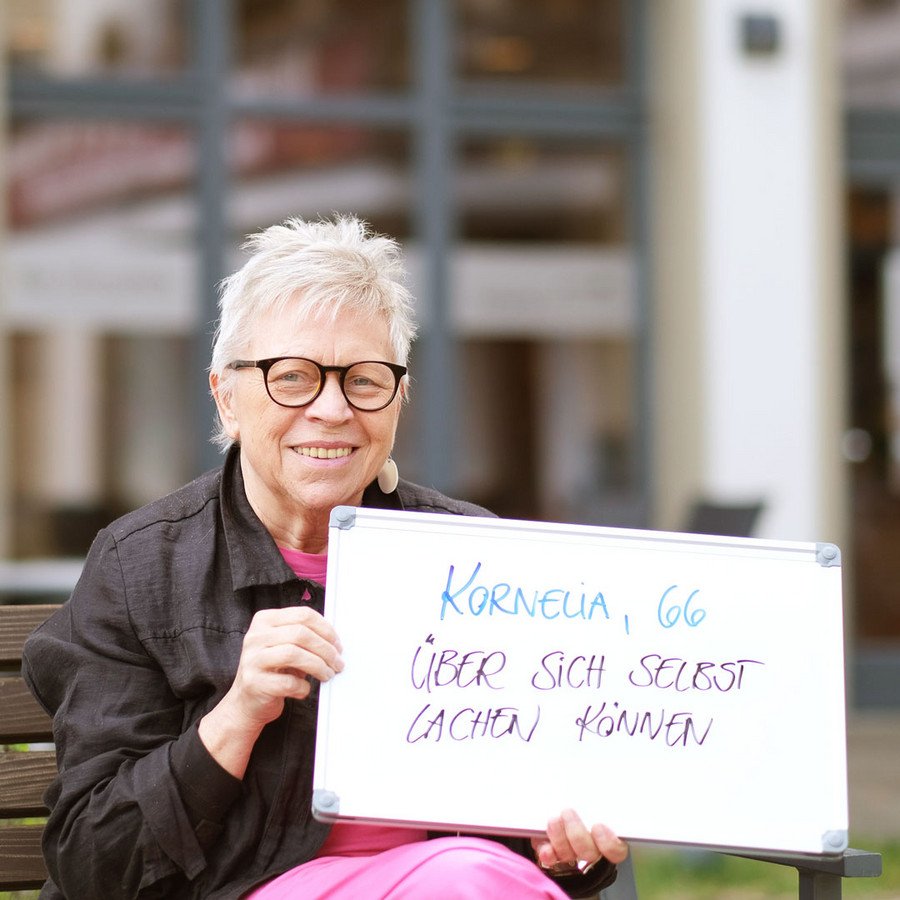 KORNELIA, 66
ÜBER SICH SELBST
LACHEN KÖNNEN